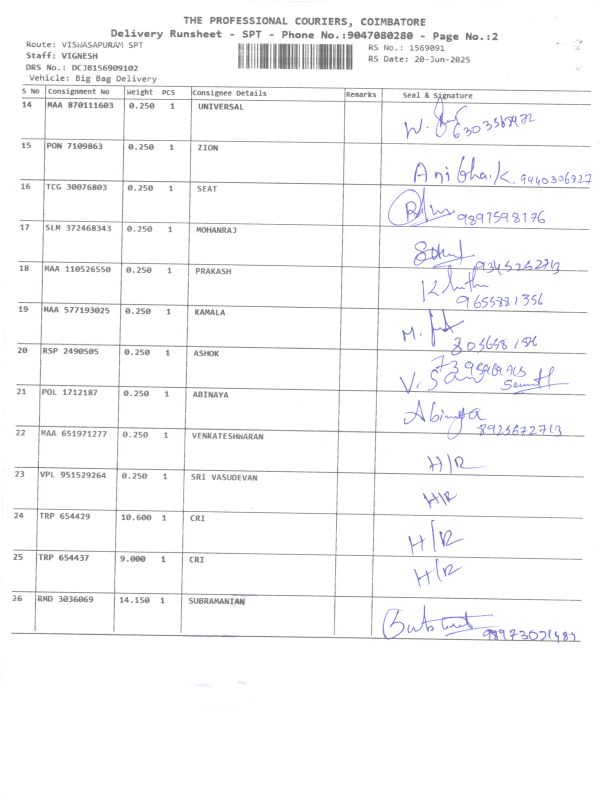 THE PROFESSIONAL COURIERS, COIMBATORE
Delivery Runsheet - SPT - Phone No.:9047080280 - Page No.:2
Route: VISWASAPURAM SPT RS No.: 1569091
Staff: VIGNESH RS Date: 20-Jun-2025
DRS No.: DCJB156909102
Vehicle: Big Bag Delivery
S No Consignment No Weight PCS Consignee Details Remarks Seal & Signature
14 MAA 870111603 0.250 1 UNIVERSAL
15 PON 7109863 0.250 1 ZION
9940306927
16 TCG 30076803 0.250 1 SEAT
9897598176
17 SLM 372468343 0.250 1 MOHANRAJ
9345252713
18 MAA 110526550 0.250 1 PRAKASH
9655881356
19 MAA 577193025 0.250 1 KAMALA
20 RSP 2490505 0.250 1 ASHOK
21 POL 1712187 0.250 1 ABINAYA Abinaya
8925672713
22 MAA 651971277 0.250 1 VENKATESHWARAN H/R
23 VPL 951529264 0.250 1 SRI VASUDEVAN H/R
24 TRP 654429 10.600 1 CRI H/R
25 TRP 654437 9.000 1 CRI H/R
26 RMD 3036069 14.150 1 SUBRAMANIAN